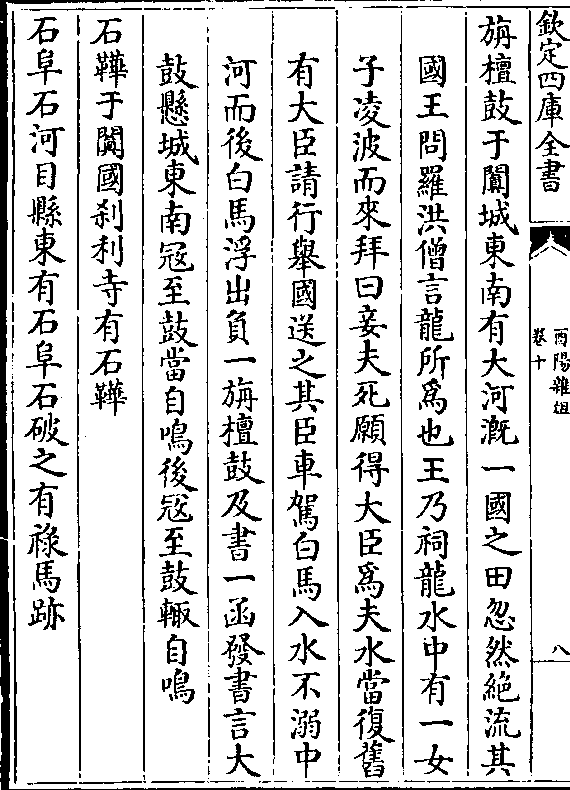 欽定四庫全書
酉陽雜俎
卷十
八
旃檀鼓于闐城東南有大河溉一國之田忽然絶流其
國王問羅洪僧言龍所為也王乃祠龍水中有一女
子凌波而來拜曰妾夫死願得大臣為夫水當復舊
有大臣請行舉國送之其臣車駕白馬入水不溺中
河而後白馬浮出負一旃檀鼓及書一函發書言大
鼓懸城東南宼至鼓當自鳴後宼至鼓輙自鳴
石鞾于闐國刹利寺有石鞾
石阜石河目縣東有石阜石破之有祿馬跡